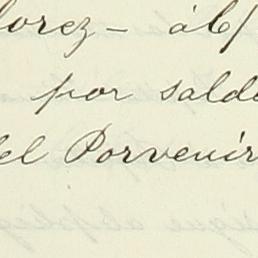 lorez - á b/
por salde
del Porvenir